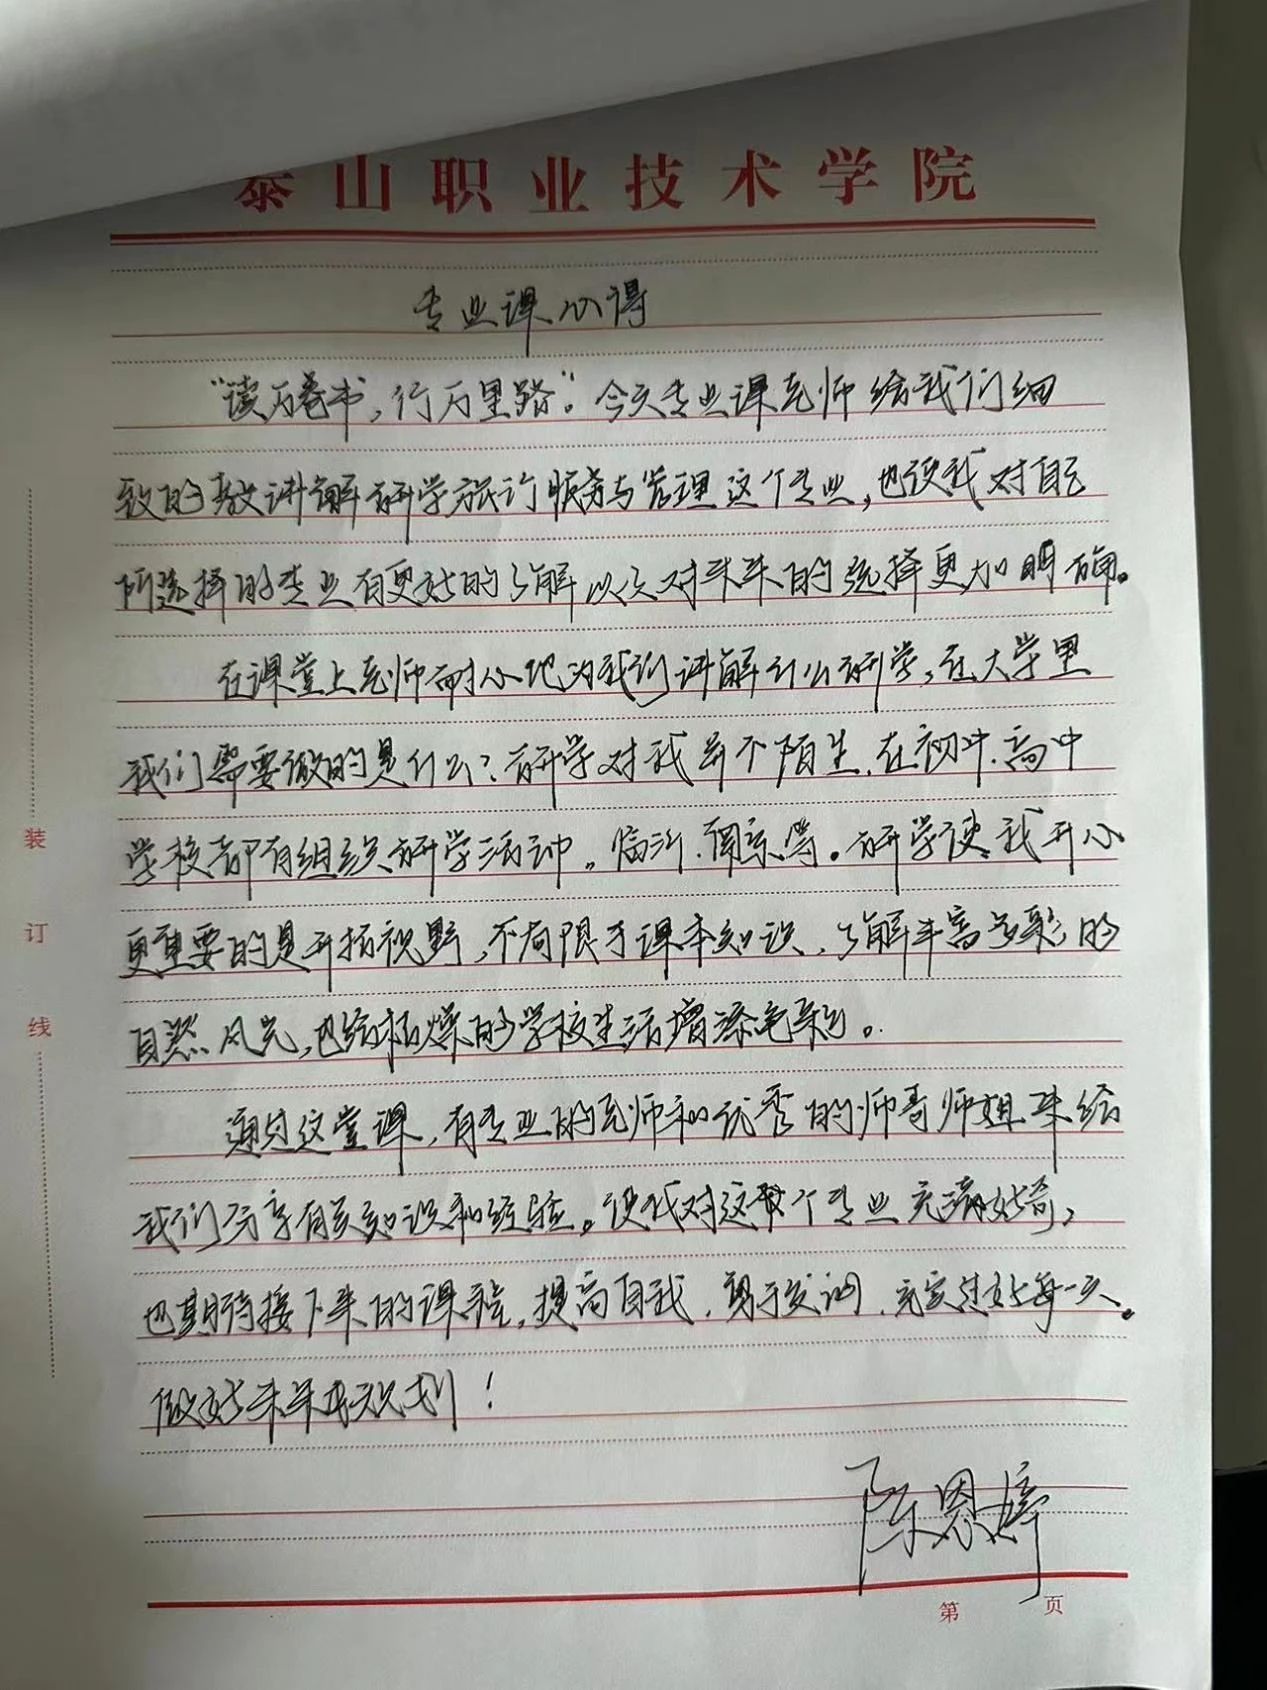 泰山职业技术学院
专业课心得
“读万卷书，行万里路”。今天专业课老师给我们细
致的教讲解研学旅行服务与管理这个专业，也使我对自己
所选择的专业有更好的了解以及对未来的选择更加明确。
在课堂上老师耐心地为我们讲解什么研学，在大学里
我们需要做的是什么？研学对我并不陌生，在初中、高中
学校都有组织研学活动。临沂、南京等。研学使我开心
更重要的是开拓视野，不局限于课本知识，了解丰富多彩的
自然风光，也给枯燥的学校生活增添色彩。
通过这堂课，有专业的老师和优秀的师哥师姐来给
我们分享有关知识和经验。使我对这个专业充满好奇，
也期待接下来的课程，提高自我，勇于发问，充实过好每一天。
做好未来规划！
陈恩婷
装
订
线
第 页